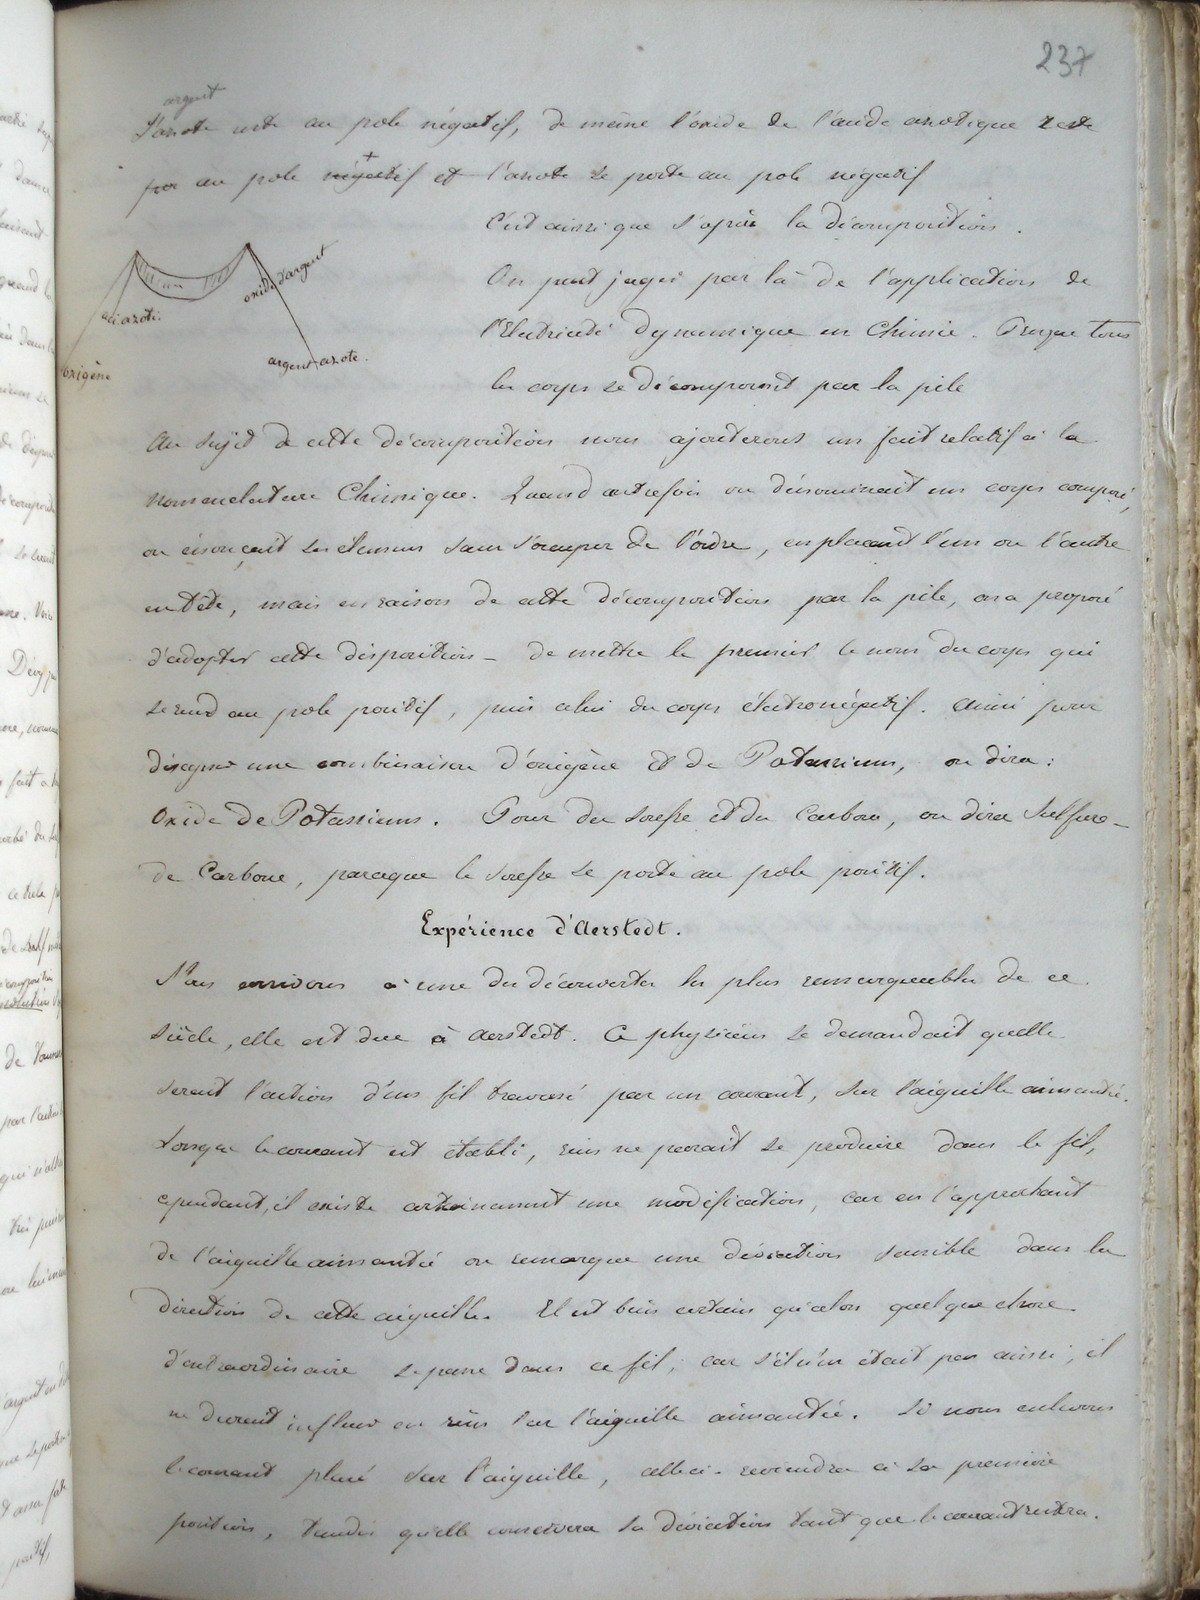 237
argent
l'azote reste au pole négatif, de même l'oxide de l'acide azotique reste
fixe au pole négatif et l'azote se porte au pole négatif
+
C'est ainsi que s'opère la décomposition.
On peut juger par là de l'application de
l'Electricité dynamique en Chimie. Presque tous
les corps se décomposent par la pile
aci. azoti.
oxigène
oxide d'argent
argent azote.
Au sujet de cette décomposition nous ajouterons un fait relatif à la
nomenclature Chimique. Quand autrefois on dénominait un corps composé,
on énonçait ses élemens sans s'occuper de l'ordre, en placant l'un ou l'autre
en tête, mais en raison de cette décomposition par la pile, on a proposé
d'adopter cette disposition - de mettre le premier le nom du corps qui
se rend au pole positif, puis celui du corps électronégatif. Ainsi pour
désigner une combinaison d'oxigène et de Potassium, on dira:
Oxide de Potassium. Pour du soufre et du Carbone, on dira Sulfure-
de Carbone, parceque le soufre se porte au pole positif.
Expérience d'Aerstedt.
Nous arrivons à une des découvertes les plus remarquables de ce
siècle, elle est due à Aerstedt. Ce physicien se demandait quelle
serait l'action d'un fil traversé par un courant, sur l'aiguille aimantée.
Lorsque le courant est établi, rien ne parait se produire dans le fil,
cependant, il existe certainement une modification, car en l'approchant
de l'aiguille aimantée on remarque une déviation sensible dans la
direction de cette aiguille. Il est bien certain qu'alors quelque chose
d'extraordinaire se passe dans ce fil, car s'il n'en était pas ainsi, il
ne devrait influer en rien sur l'aiguille aimantée. Si nous enlevons
le courant placé sur l'aiguille, celle-ci reviendra à sa première
position, tandis qu'elle conservera sa déviation tant que le courant restera.